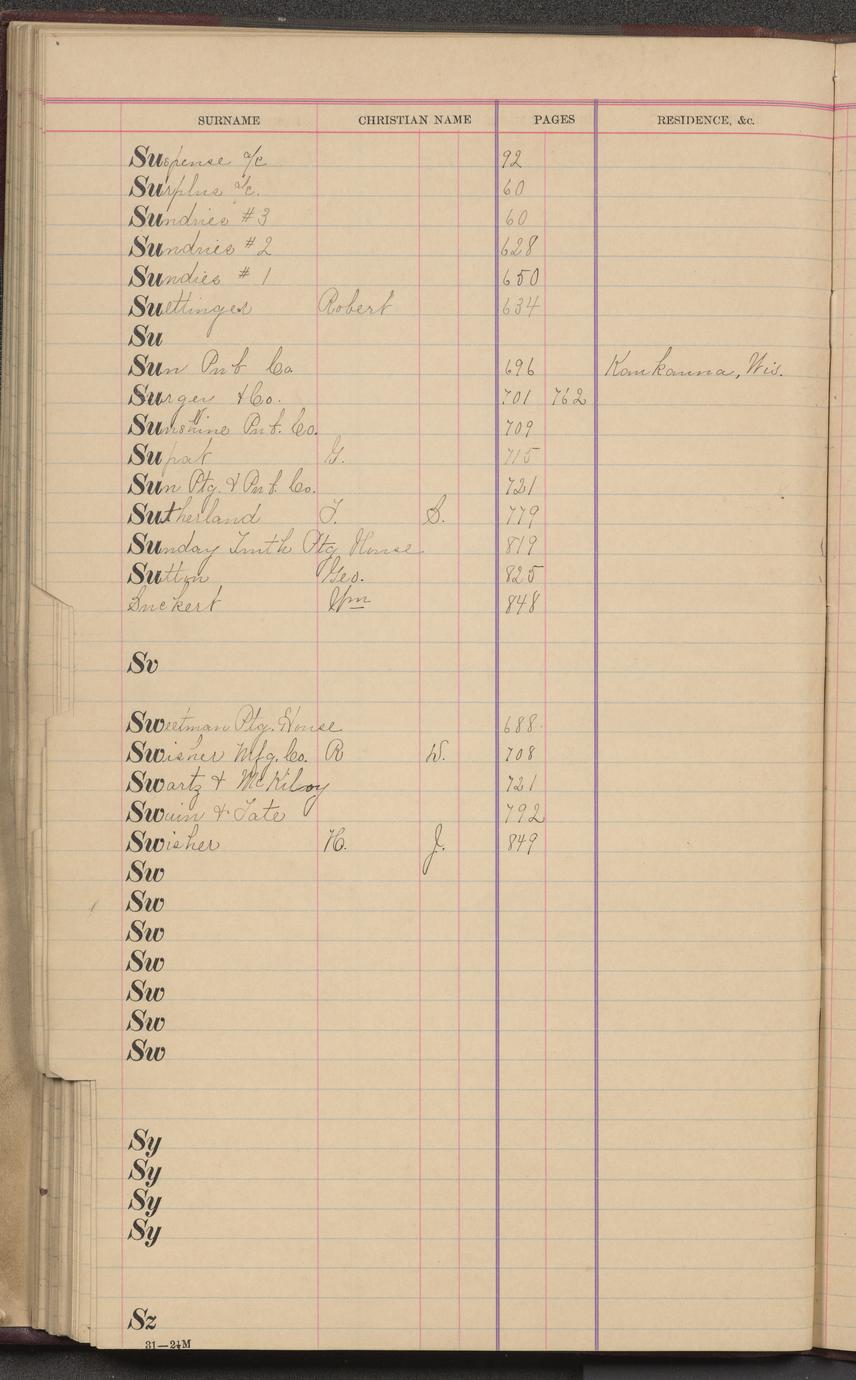 SURNAME CHRISTIAN NAME PAGES RESIDENCE, &c.
Suspense a/c 92
Surplus a/c. 60
Sundries #3 60
Sundries #2 628
Sundies #1 650
Suettinger Robert 634
Su
Sun Pub Co 696 Kaukauna, Wis.
Surger & Co. 701 762
Sunshine Pub. Co. 709
Supat G. 715
Sun Ptg. & Pub. Co. 721
Sutherland T. S. 779
Sunday Truth Ptg House 819
Sutton Geo. 825
Suckert Wm 848
Sv
Sweetman Ptg. House 688
Swisher Mfg. Co. R W. 708
Swartz & McKilvoy 721
Swain & Tate 792
Swisher H. J. 849
Sw
Sw
Sw
Sw
Sw
Sw
Sw
Sy
Sy
Sy
Sy
Sz
31—2½M